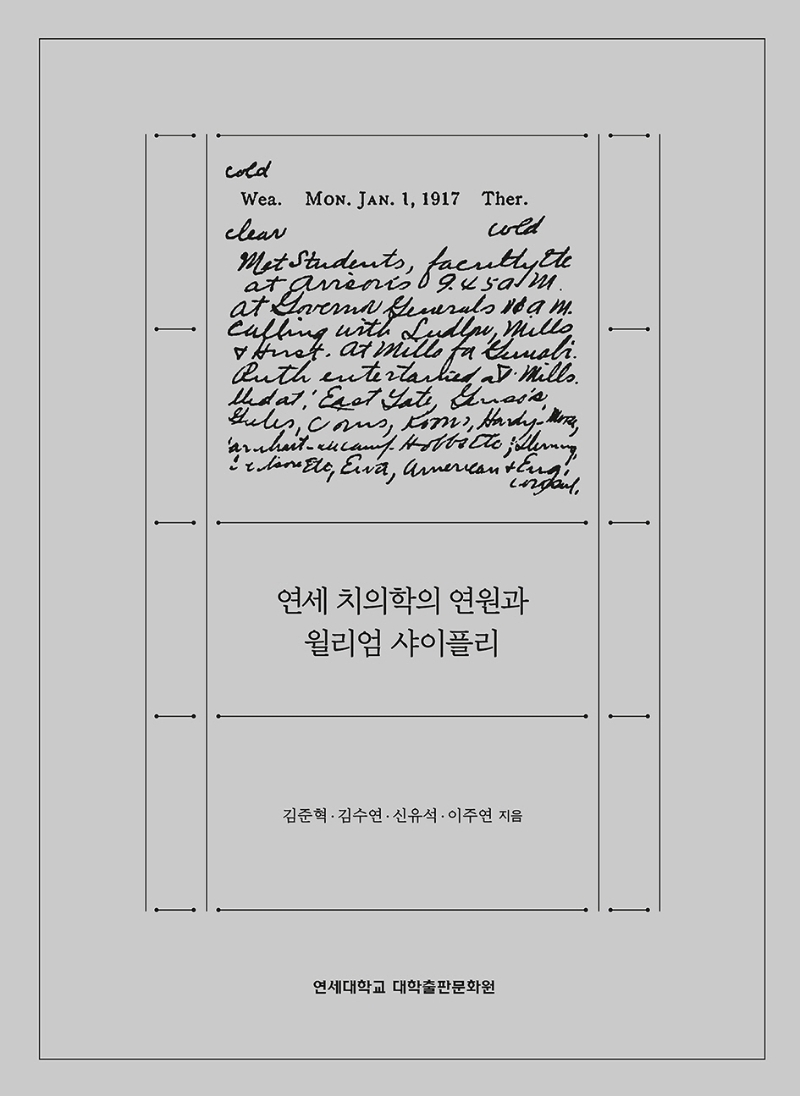 cold
Wea. Mon. Jan. 1, 1917 Ther.
clear cold
Met Students, faculty etc
at Avison's 9.45 a M.
at Governor Generals a m.
Calling with Ludlow, Mills
& Hirst. At Mills for
Ruth entertained at Mills.
East Gate,
Coms, Koons, Hardy
Hobbs etc
Etc, Ewa, American & Eng.
연세 치의학의 연원과
윌리엄 샤이플리
김준혁·김수연·신유석·이주연 지음
연세대학교 대학출판문화원